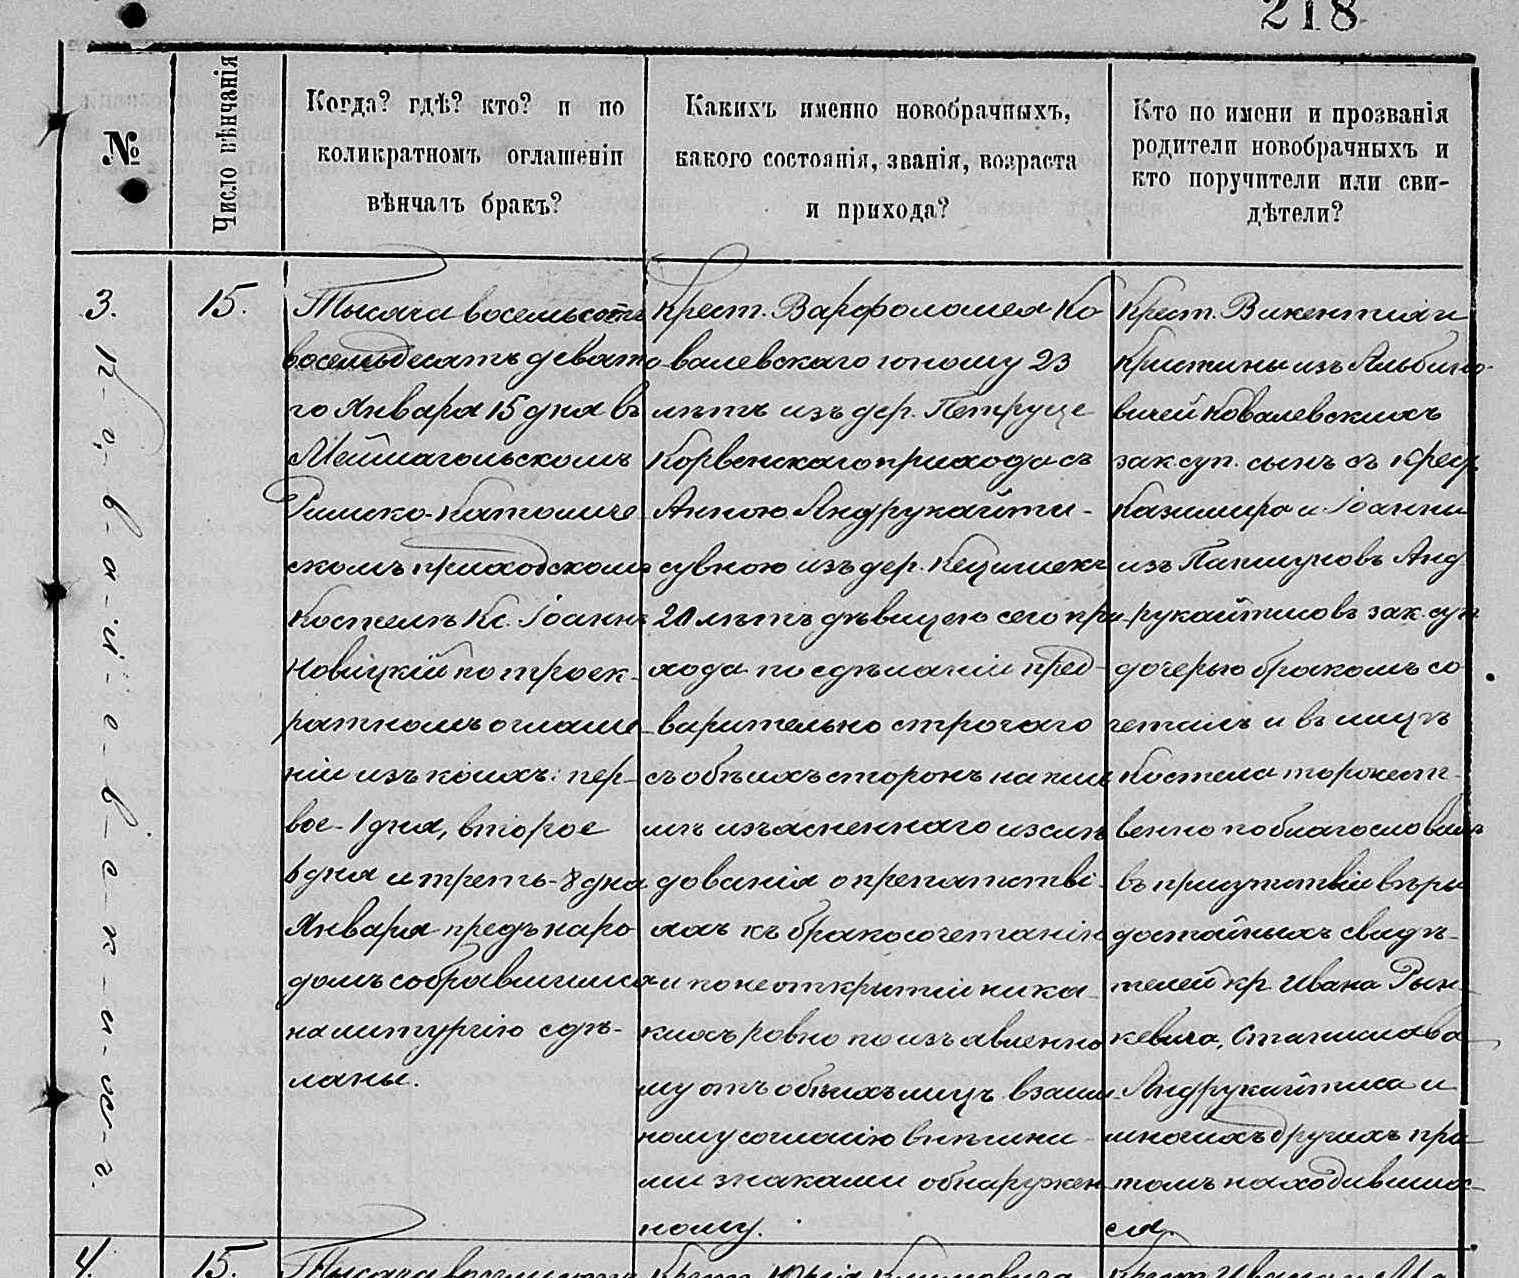 218
№
Число вѣнчанія
Когда? гдѣ? кто? и по
коликратномъ оглашеніи
вѣнчалъ бракъ?
Какихъ именно новобрачныхъ,
какого состоянія, званія, возраста
и прихода?
Кто по имени и прозванія
родители новобрачныхъ и
кто поручители или сви-
дѣтели?
3.
К-о-в-а-л-е-в-с-к-и-с-г.
15.
Тысяча восемьсотъ
восемьдесятъ девято
го Января 15 дня въ
Мейшагольскомъ
Римско-Католиче
скомъ приходскомъ
Костелѣ Кс. Іоаннъ
Новицкій по троек-
ратномъ оглаше
ніи изъ коихъ: пер-
вое - 1 дня, второе
6 дня и треть - 8 дня
Января предъ наро
домъ собравшимся
на литургію сдѣ-
ланы.
Крест. Варфоломея Ко
валевскаго юношу 23
лѣтъ изъ дер. Петруце
Корвенскаго прихода съ
Анною Андрукайти-
сувною изъ дер. Кецишекъ
21 лѣтъ дѣвицею сего при
хода по сдѣланіи пред-
варительно строгаго
съ обѣихъ сторонъ на пись
мѣ изъясненнаго изслѣ
дованія о препятстві-
яхъ къ бракосочетанію
и по неоткрытіи ника-
кихъ ровно по изъявленно
му отъ обѣихъ лицъ взаим
ному согласію внѣшни-
ми знаками обнаружен
ному.
Крест. Викентія и
Кристины изъ Альбино-
вичей Ковалевскихъ
зак. суп. сынъ съ крест
Казимира и Іоанны
изъ Папшуновъ Анд
рукайтисовъ зак. суп
дочерью бракомъ со
четалъ и въ лицѣ
Костела торжест-
венно поблагословилъ
въ присутствіи вѣры
достойныхъ свидѣ-
телей кр. Ивана Рын-
кевича, Станислава
Андрукайтиса и
многихъ другихъ при
томъ находившихс-
ся.
4.
15.
Тысяча восемьсотъ
Крест. Юрія Климовича
Крест. Ивана и Ма